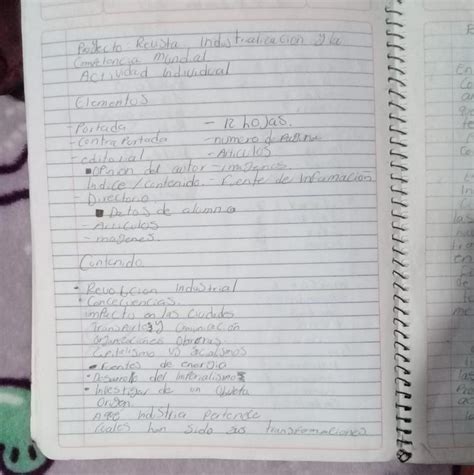 Proyecto Revista Industrialización y la
Competencia Mundial
Actividad Individual
Elementos
- Portada - 12 hojas.
- Contra Portada - numero de
- editorial - Articulos
■ Opnion del autor - imagenes
Indice / Contenido - Fuente de Informacion
- Directorio
■ Datos de alumno
- Articulos
- imagenes.
Contenido.
• Revolucion Industrial
• Concecuencias.
impacto en las ciudades
Transportes y Comunicación
Organizaciones Obreras
Capitalismo VS Socialismos
• Fuentes de energia
• Desarrollo del Imperialismo
• Investigar de un Objeto
Origen
A que Industria Pertenece
Cuales han Sido sus transformaciones